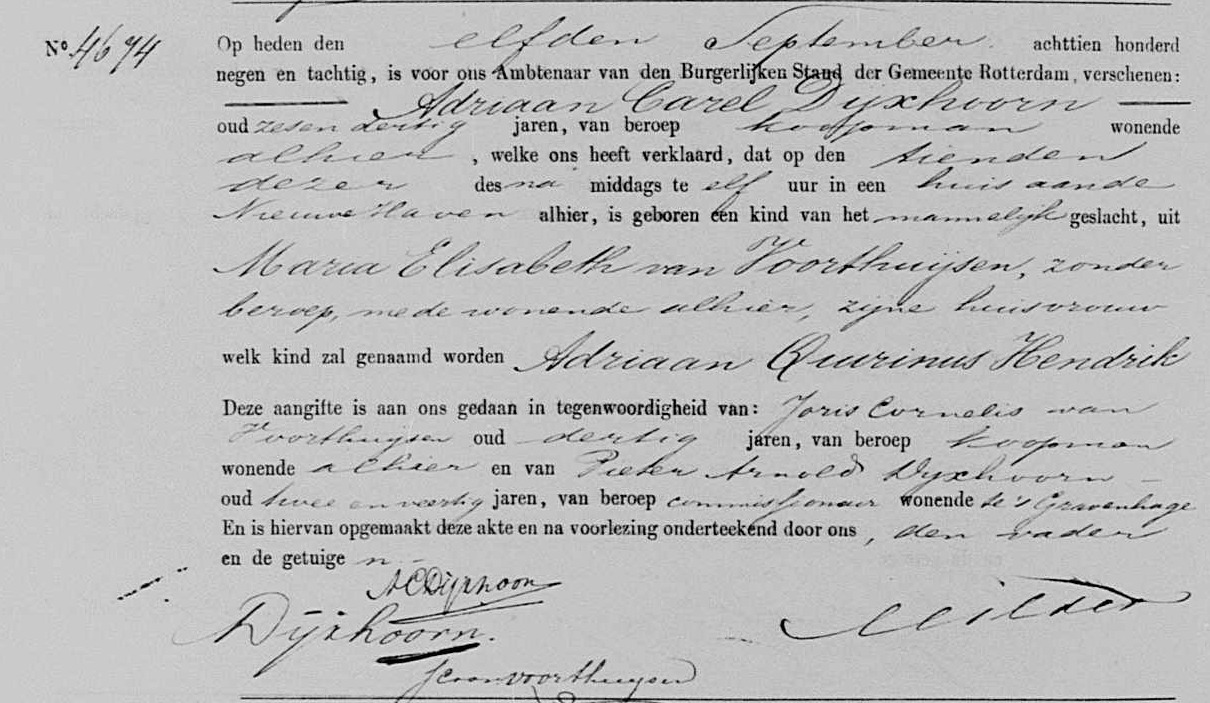 No. 4674
Op heden den elfden September achttien honderd
negen en tachtig, is voor ons Ambtenaar van den Burgerlijken Stand der Gemeente Rotterdam, verschenen:
Adriaan Carel Dijxhoorn
oud zesendertig jaren, van beroep koopman wonende
alhier, welke ons heeft verklaard, dat op den tienden
dezer des na middags te elf uur in een huis aan de
Nieuwe Haven alhier, is geboren een kind van het mannelijk geslacht, uit
Maria Elisabeth van Voorthuijsen, zonder
beroep, mede wonende alhier, zijne huisvrouw
welk kind zal genaamd worden Adriaan Quirinus Hendrik
Deze aangifte is aan ons gedaan in tegenwoordigheid van: Joris Cornelis van
Voorthuijsen oud dertig jaren, van beroep koopman
wonende alhier en van Pieter Arnold Dijxhoorn
oud twee en veertig jaren, van beroep commissionair wonende te 's Gravenhage
En is hiervan opgemaakt deze akte en na voorlezing onderteekend door ons, den vader
en de getuige n
ACDijxhoorn
Dijxhoorn.
JCvanvoorthuijsen